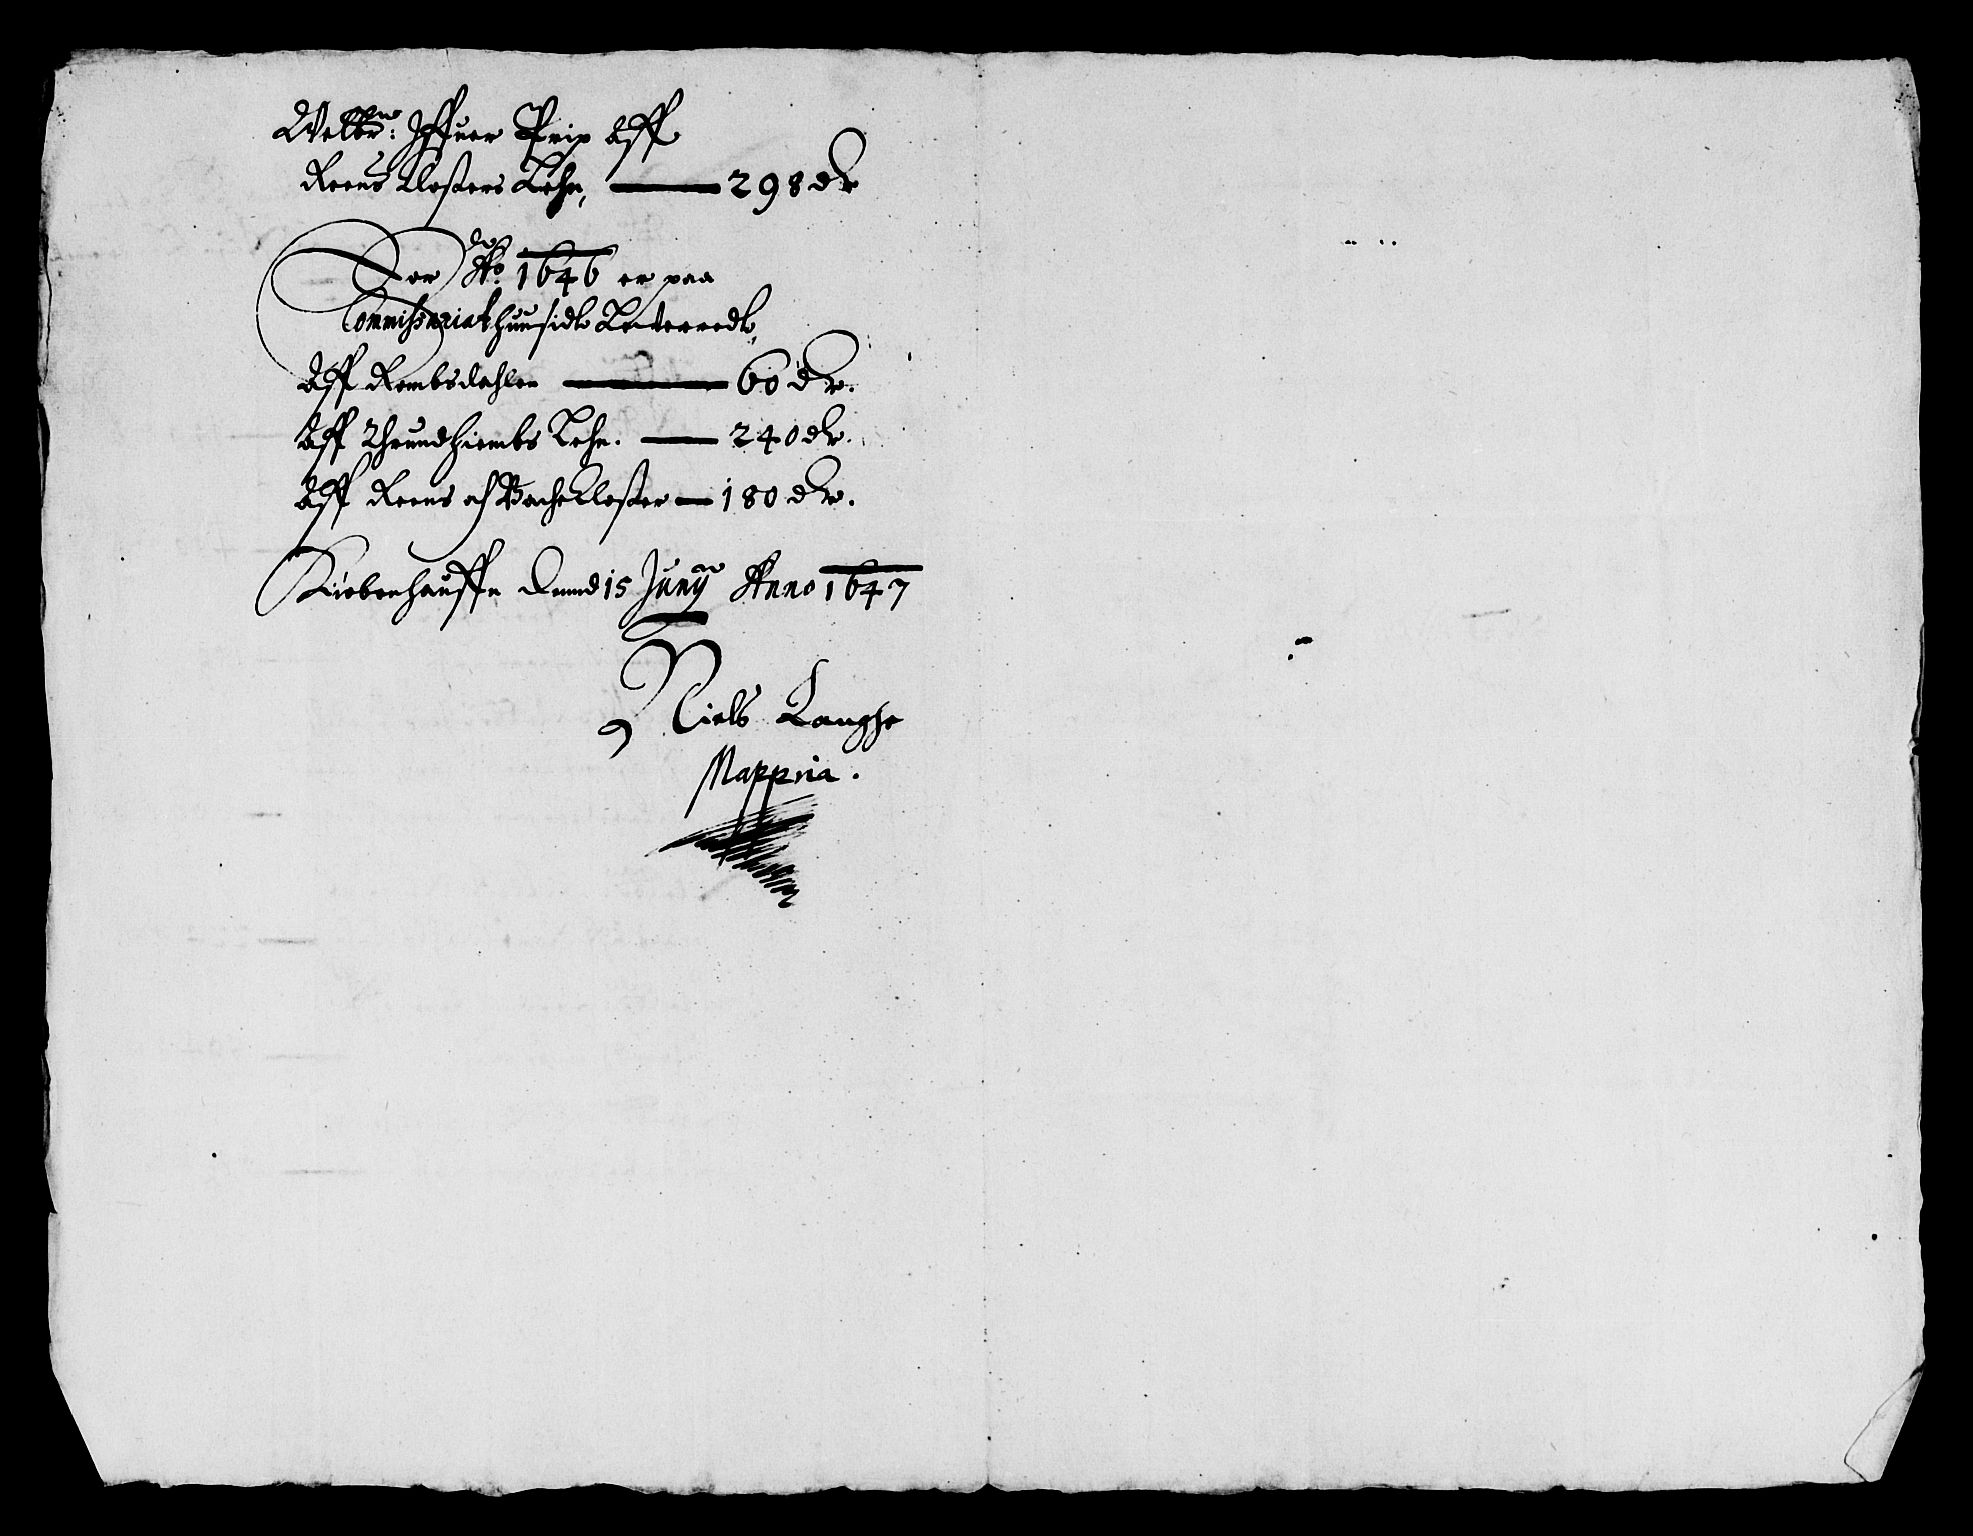 Welbr: Iffuer Prip Aff
Reens Closters Lehn, 298 dr
For Ao. 1646 er paa
Commissariathuusidt Leuerredt,
Aff Rombsdahlen 60 dr.
Aff Throndhiembs Lehn. 240 dr.
Aff Reens oc Backe Closter 180 dr.
Kiøbenhauffn dennd 15 Juny Anno 1647
Niels Langhe
Mappria.